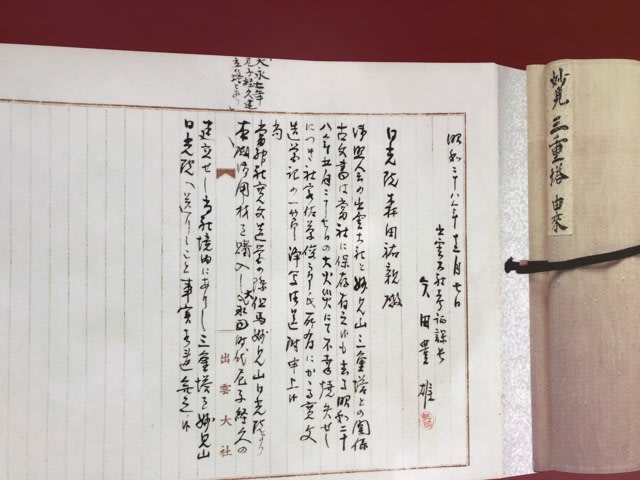 妙見三重塔由来
昭和三十八年十二月七日
出雲大社考証課長
矢田豊雄
日光院森田祐親殿
御照会の出雲大社と妙見山三重塔との関係
古文書は当社に保存有之候も去る昭和二十
八年五月二十七日の大火災にて不幸焼失せし
につき社家佐草俊 氏所有にかゝる寛文
造営記の一節浄写御送附申上候
尚
当神社寛文造営の際但馬妙見山日光院より
本殿御用材を購入し大永時代尼子経久の
建立せし当社境内にありし三重塔を妙見山
日光院へ送りしこと事実相違無之候
大永七年
尼子経久建
立の塔なり
出雲大社